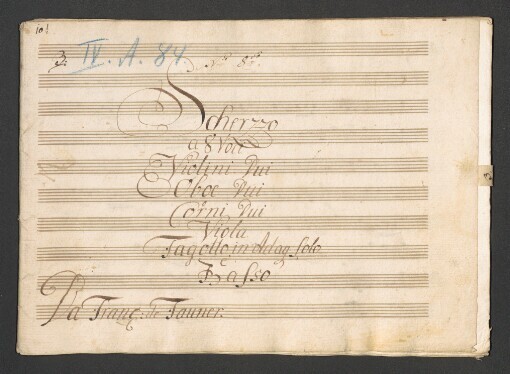 IV. A. 84.
Scherzo
a 8 Voci
Violini Dui
Oboe Dui
Corni Dui
Viola
Fagotto in Adag. Solo
Basso
Da Franc: de Tauner.